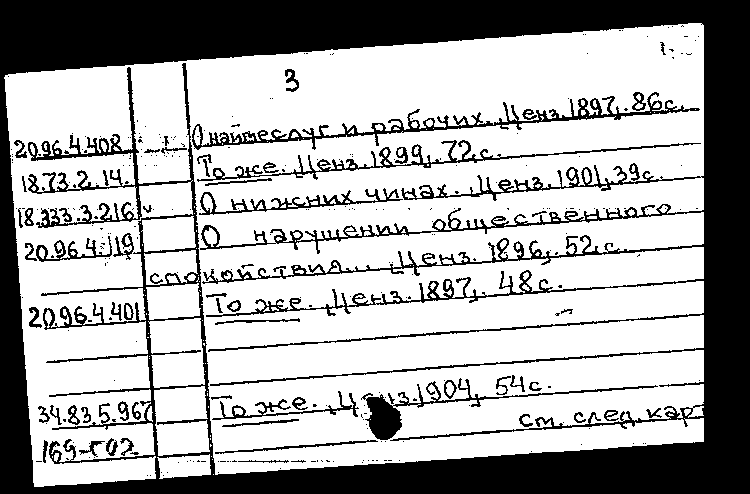 3
20.96.4.408 О наймеслуг и рабочих. Ценз. 1897, 86с.
18.73.2.14. То же. Ценз. 1899, 72с.
18.333.3.216 О нижних чинах. Ценз. 1901, 39с.
20.96.4.119 О нарушении общественного
спокойствия... Ценз. 1896, 52с.
20.96.4.401 То же. Ценз. 1897, 48с.
34.83.5.967 То же. Ценз. 1904, 54с.
169-502 см. след. карт